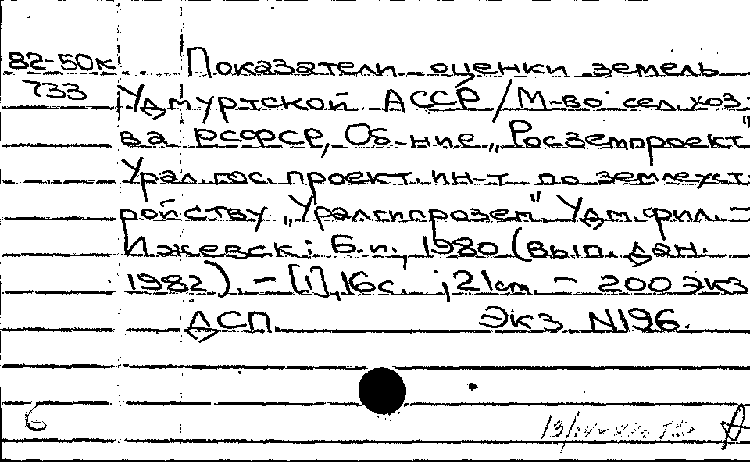 82-50к Показатели оценки земель
733 Удмуртской АССР / М-во сел. хоз-
ва РСФСР, Об-ние „Росземпроект"
Урал. гос. проект. ин-т по землеуст-
ройству „Уралгипрозем" Удм. фил. –
Ижевск: Б.и., 1980 (вып. дан.
1982). – [1], 16 с. ; 21 см. – 200 экз
ДСП. Экз N196.
6